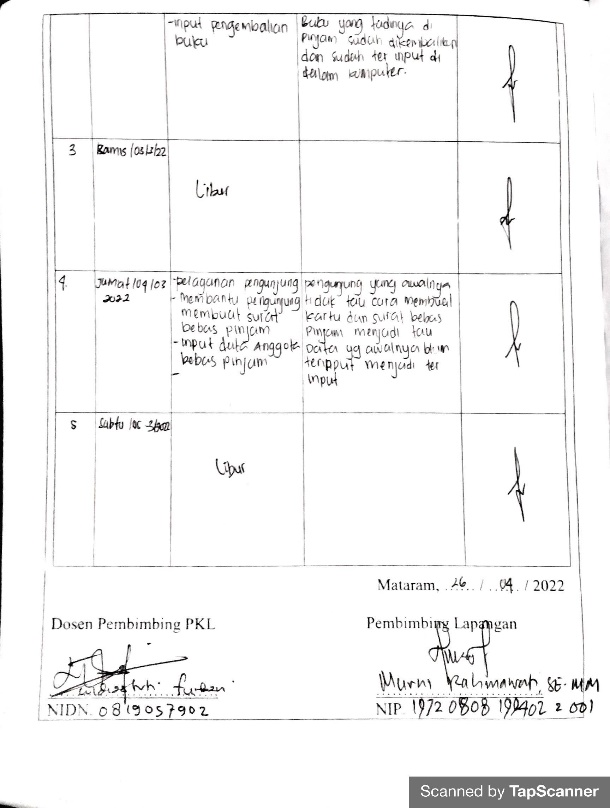 -input pengembalian
buku
Buku yang tadinya di
pinjam sudah dikembalikan
dan sudah ter input di
dalam komputer.
3
Kamis /03/3/22
Libur
4.
Jumat/04/03
2022
-pelayanan pengunjung
- membantu pengunjung
membuat surat
bebas pinjam
- input data Anggota
bebas pinjam
-
pengunjung yang awalnya
tidak tau cara membuat
kartu dan surat bebas
pinjam menjadi tau
Data yg awalnya blm
terinput menjadi ter
input
5
Sabtu /05
Libur
Mataram, 26 / 04 / 2022
Dosen Pembimbing PKL
Pembimbing Lapangan
Murni Rahmawati, SE. MM
NIDN. 0819057902
NIP. 1972 0808 199402 2 001
Scanned by TapScanner